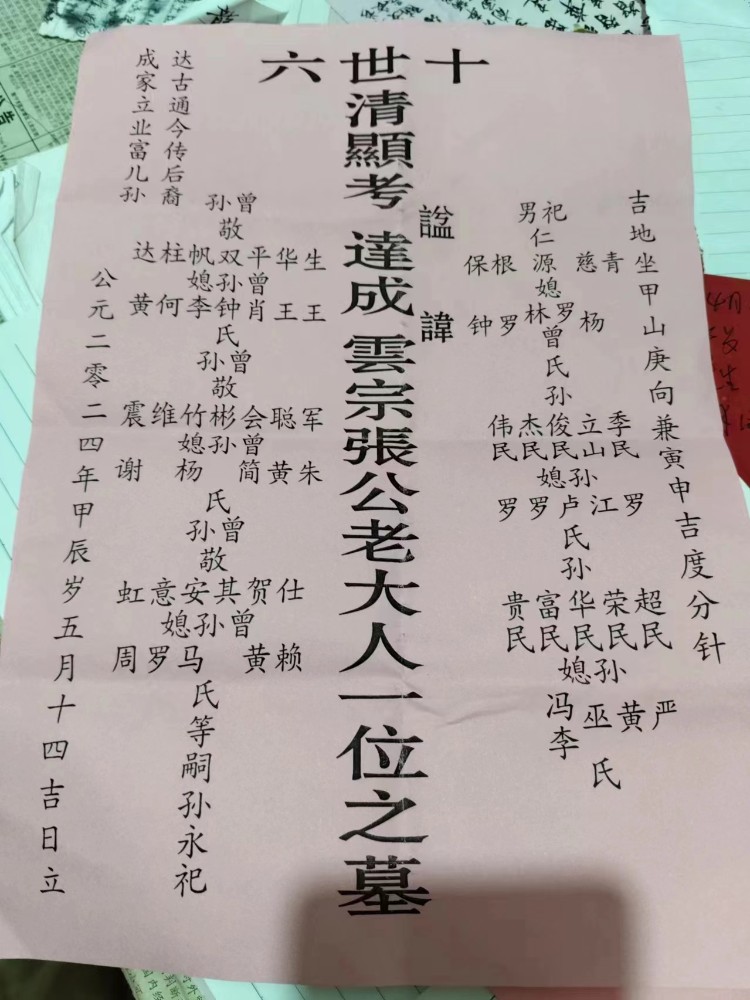 吉地坐甲山庚向兼寅申吉度分针
男祀
仁
保根源慈青
媳
钟罗林罗杨
曾
氏
孙
伟杰俊立季
民民民山民
媳孙
罗罗卢江罗
氏
孙
贵富华荣超
民民民民民
媳孙
冯巫黄严
李
氏
諡
諱
十六
世清顯考達成雲宗張公老大人一位之墓
孙曾
敬
达柱帆双平华生
媳孙曾
黄何李钟肖王王
氏
孙曾
敬
震维竹彬会聪军
媳孙曾
谢杨简黄朱
氏
孙曾
敬
虹意安其贺仕
媳孙曾
周罗马黄赖
氏等嗣孙永祀
达古通今传后裔
成家立业富儿孙
公元二零二四年甲辰岁五月十四吉日立